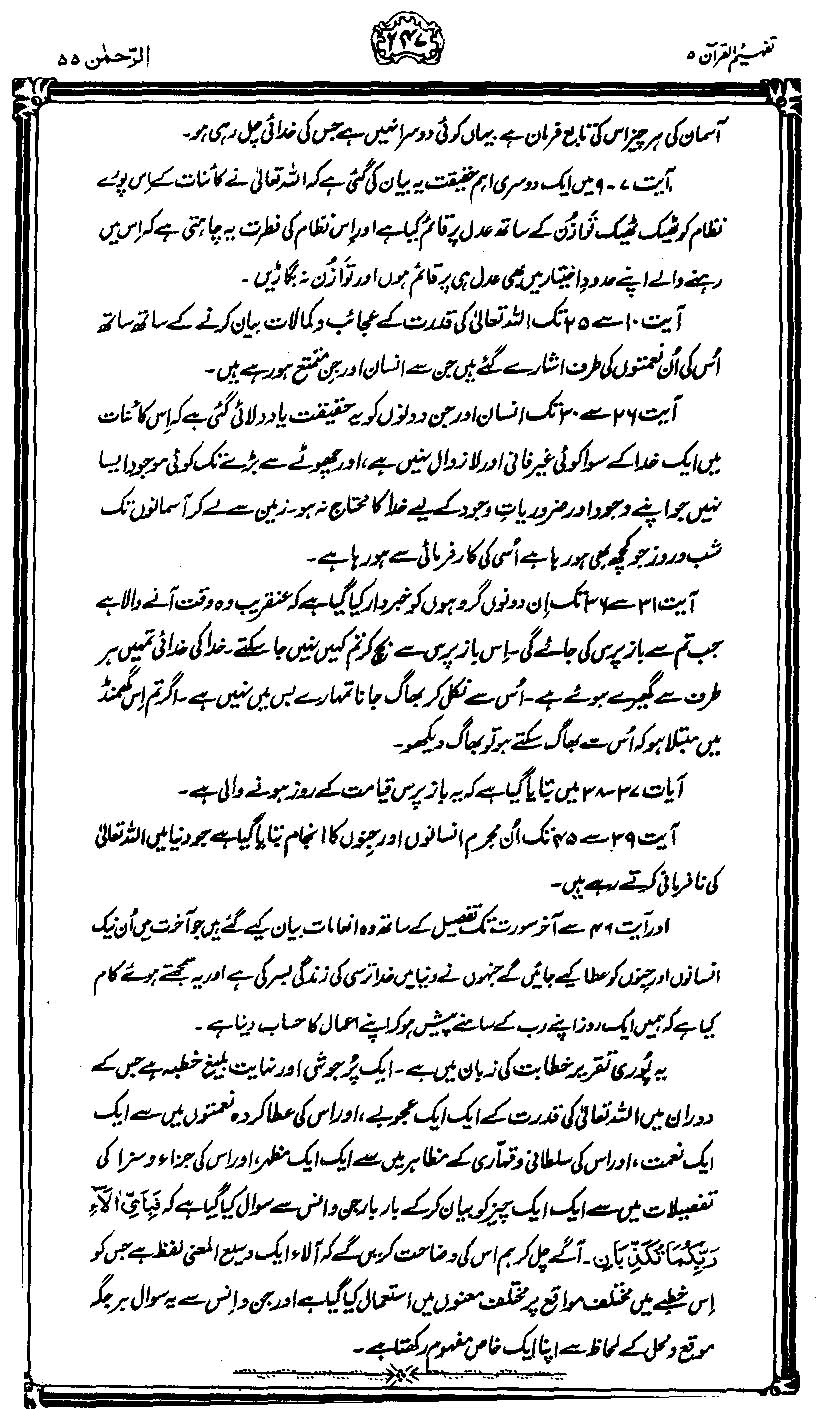 تفہیم القرآن ۵
۲۴۷
الرّحمٰن ۵۵
آسمان کی ہر چیز اس کی تابع فرمان ہے یہاں کوئی دوسرا نہیں ہے جس کی خدائی چل رہی ہو۔
آیت ۷-۹ میں ایک دوسری اہم حقیقت یہ بیان کی گئی ہے کہ اللہ تعالیٰ نے کائنات کے اِس پورے
نظام کو ٹھیک ٹھیک تَوَازُن کے ساتھ عدل پر قائم کیا ہے اور اِس نظام کی فطرت یہ چاہتی ہے کہ اِس میں
رہنے والے اپنے حدودِ اختیار میں بھی عدل ہی پر قائم ہوں اور تَوَازُن نہ بگاڑیں۔
آیت ۱۰ سے ۲۵ تک اللہ تعالیٰ کی قدرت کے عجائب و کمالات بیان کرنے کے ساتھ ساتھ
اُس کی اُن نعمتوں کی طرف اشارے کیے گئے ہیں جن سے انسان اور جن متمتع ہو رہے ہیں۔
آیت ۲۶ سے ۳۰ تک انسان اور جن دونوں کو یہ حقیقت یاد دلائی گئی ہے کہ اِس کائنات
میں ایک خدا کے سوا کوئی غیر فانی اور لازوال نہیں ہے، اور چھوٹے سے بڑے تک کوئی موجود ایسا
نہیں جو اپنے وجود اور ضروریاتِ وجود کے لیے خدا کا محتاج نہ ہو۔ زمین سے لے کر آسمانوں تک
شب و روز جو کچھ بھی ہو رہا ہے اُسی کی کارفرمائی سے ہو رہا ہے۔
آیت ۳۱ سے ۳۶ تک اِن دونوں گروہوں کو خبردار کیا گیا ہے کہ عنقریب وہ وقت آنے والا ہے
جب تم سے باز پرس کی جائے گی۔ اِس باز پرس سے بچ کر تم کہیں نہیں جا سکتے۔ خدا کی خدائی تمہیں ہر
طرف سے گھیرے ہوئے ہے۔ اُس سے نکل کر بھاگ جانا تمہارے بس میں نہیں ہے۔ اگر تم اِس گھمنڈ
میں مبتلا ہو کہ اُس سے بھاگ سکتے ہو تو بھاگ دیکھو۔
آیات ۳۷-۳۸ میں بتایا گیا ہے کہ یہ باز پرس قیامت کے روز ہونے والی ہے۔
آیت ۳۹ سے ۴۵ تک اُن مجرم انسانوں اور جِنوں کا انجام بتایا گیا ہے جو دنیا میں اللہ تعالیٰ
کی نافرمانی کرتے رہے ہیں۔
اور آیت ۴۶ سے آخر سورت تک تفصیل کے ساتھ وہ انعامات بیان کیے گئے ہیں جو آخرت میں اُن نیک
انسانوں اور جِنوں کو عطا کیے جائیں گے جنہوں نے دنیا میں خدا ترسی کی زندگی بسر کی ہے اور یہ سمجھتے ہوئے کام
کیا ہے کہ ہمیں ایک روز اپنے رب کے سامنے پیش ہو کر اپنے اعمال کا حساب دینا ہے۔
یہ پُوری تقریر خطابت کی زبان میں ہے۔ ایک پُرجوش اور نہایت بلیغ خطبہ ہے جس کے
دوران میں اللہ تعالیٰ کی قدرت کے ایک ایک عجوبے، اور اس کی عطا کردہ نعمتوں میں سے ایک
ایک نعمت، اور اس کی سلطانی و قہّاری کے مظاہر میں سے ایک ایک مظہر، اور اس کی جزاء و سزا کی
تفصیلات میں سے ایک ایک چیز کو بیان کر کے بار بار جن و انس سے سوال کیا گیا ہے کہ فَبِاَيِّ اٰلَآءِ
رَبِّكُمَا تُكَذِّبَانِ۔ آگے چل کر ہم اس کی وضاحت کریں گے کہ آلاء ایک وسیع المعنی لفظ ہے جس کو
اِس خطبے میں مختلف مواقع پر مختلف معنوں میں استعمال کیا گیا ہے اور جن و انس سے یہ سوال ہر جگہ
موقع و محل کے لحاظ سے اپنا ایک خاص مفہوم رکھتا ہے۔